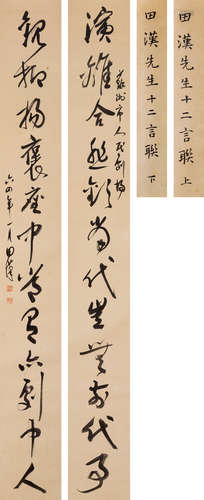 田漢先生十二言聯 上
田漢先生十二言聯 下
蘇州市人民劇場
演離合悲歡當代豈無前代事
觀抑揚褒座中有劇中人
六四年一月田漢